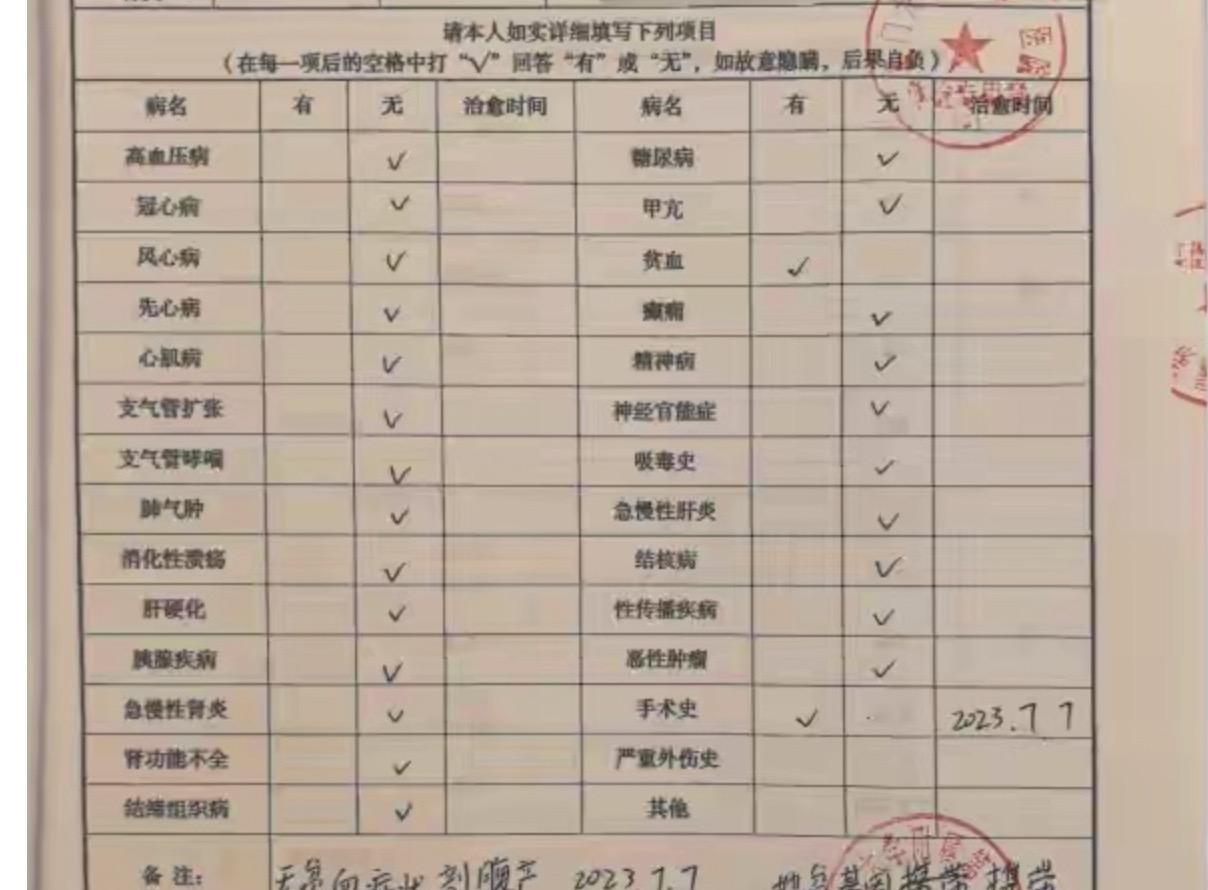 请本人如实详细填写下列项目
（在每一项后的空格中打“√”回答“有”或“无”，如故意隐瞒，后果自负）
病名 有 无 治愈时间 病名 有 无 治愈时间
高血压病 √ 糖尿病 √
冠心病 √ 甲亢 √
风心病 √ 贫血 √
先心病 √ 癫痫 √
心肌病 √ 精神病 √
支气管扩张 √ 神经官能症 √
支气管哮喘 √ 吸毒史 √
肺气肿 √ 急慢性肝炎 √
消化性溃疡 √ 结核病 √
肝硬化 √ 性传播疾病 √
胰腺疾病 √ 恶性肿瘤 √
急慢性肾炎 √ 手术史 √ 2023.7 7
肾功能不全 √ 严重外伤史
结缔组织病 √ 其他
备注： 无贫血症状 剖腹产 2023 7.7 基因携带